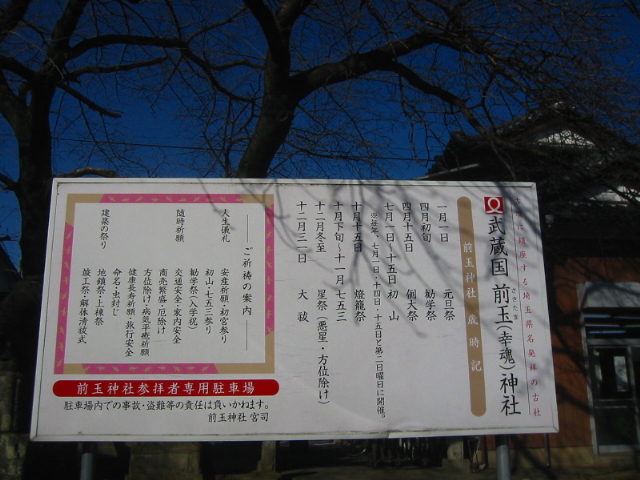 当地に鎮座する埼玉県名発祥の古社
武蔵国 前玉(幸魂)神社
さきたま
前玉神社 歳時記
一月一日 元旦祭
四月初旬 勧学祭
四月十五日 例大祭
七月一日・十五日 初山
十月十五日 燈籠祭
十月下旬～十一月 七五三
十二月冬至 星祭(悪星・方位除け)
十二月三一日 大祓
ご祈祷の案内
人生儀礼 安産祈願・初宮参り
初山・七五三参り
勧学祭(入学祝)
随時祈願 交通安全・家内安全
商売繁盛・厄除け
方位除け・病気平癒祈願
健康長寿祈願・旅行安全
命名・虫封じ
建築の祭り 地鎮祭・上棟祭
竣工祭・解体清祓式
前玉神社参拝者専用駐車場
駐車場内での事故・盗難等の責任は負いかねます。
前玉神社 宮司